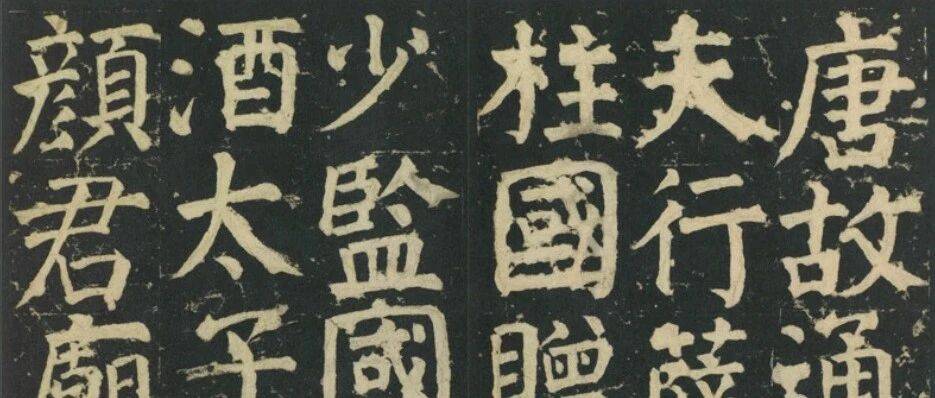 唐故通
夫行薛
柱國贈
少監國
酒太子
顏君廟